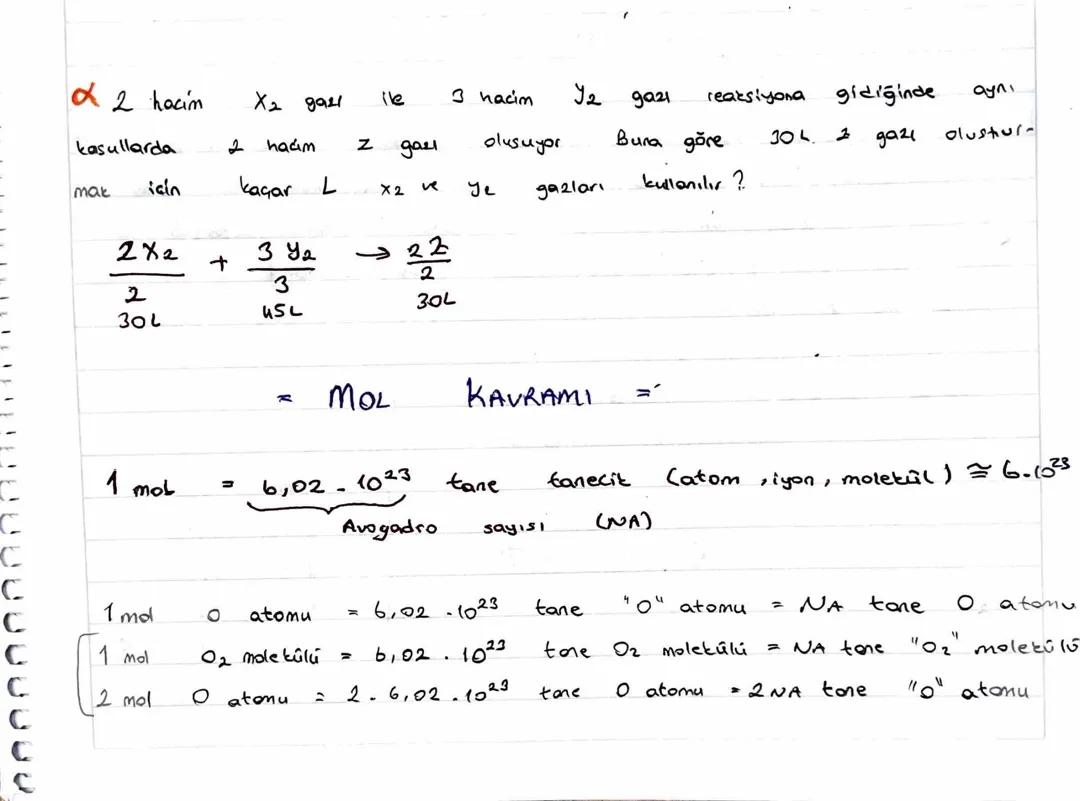 α 2 hacim X₂ gazı ile 3 hacim Y₂ gazı reaksiyona girdiğinde aynı
kosullarda 2 hacim Z gazı olusuyor Buna göre 30 L. Z gazı olustur-
mak icin kaçar L x₂ ve y₂ gazları kullanılır ?
2X₂ + 3 Y₂ → 2Z
2 3 2
30L 45L 30L
= MOL KAVRAMI =
1 mol = 6,02 . 10²³ tane tanecik (atom , iyon , molekül) ≅ 6.10²³
Avogadro sayısı (NA)
1 mol O atomu = 6,02 . 10²³ tane "O" atomu = NA tane O atomu
1 mol O₂ molekülü = 6,02 . 10²³ tane O₂ molekülü = NA tane "O₂" molekülü
2 mol O atomu = 2 . 6,02 . 10²³ tane O atomu = 2NA tane "O" atomu